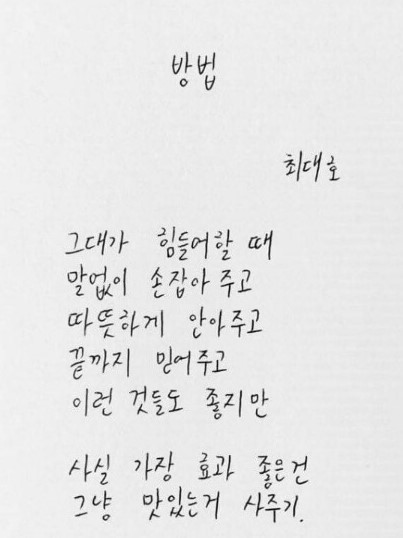 방법
최대호
그대가 힘들어할 때
말없이 손잡아 주고
따뜻하게 안아주고
끝까지 믿어주고
이런 것들도 좋지만
사실 가장 효과 좋은건
그냥 맛있는거 사주기.